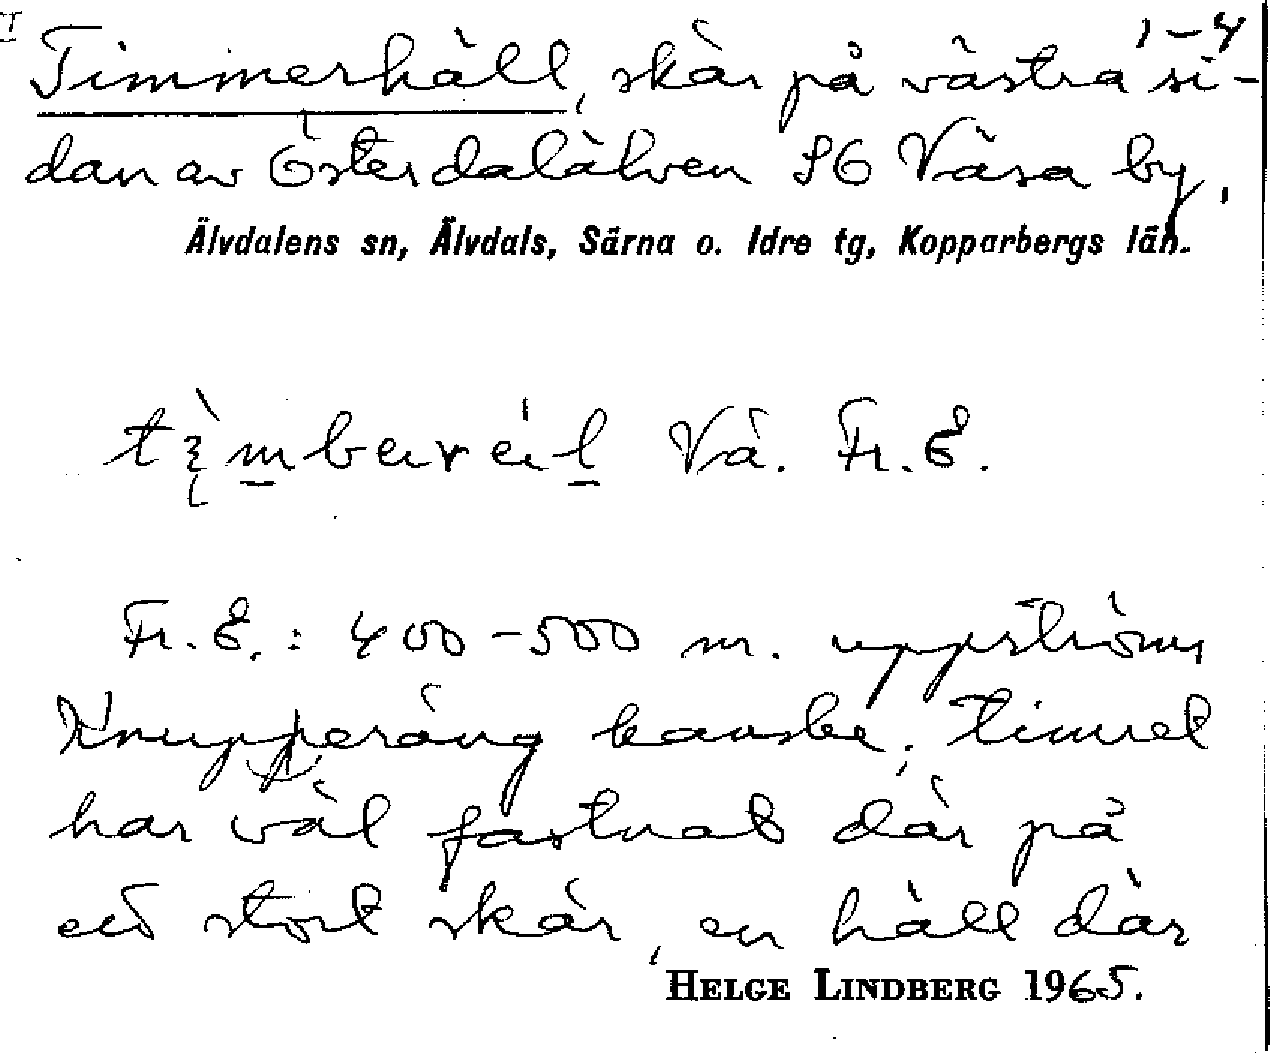 1-4
Timmerhäll, skär på västra si-
dan av Österdalälven SO Våsa by,
Älvdalens sn, Älvdals, Särna o. Idre tg, Kopparbergs län.
Vå. Fr. E.
Fr. E.: 400-500 m. uppströms
Knupperäng kanske; timret
har väl fastnat där på
ett stort skär, en häll där
HELGE LINDBERG 1965.